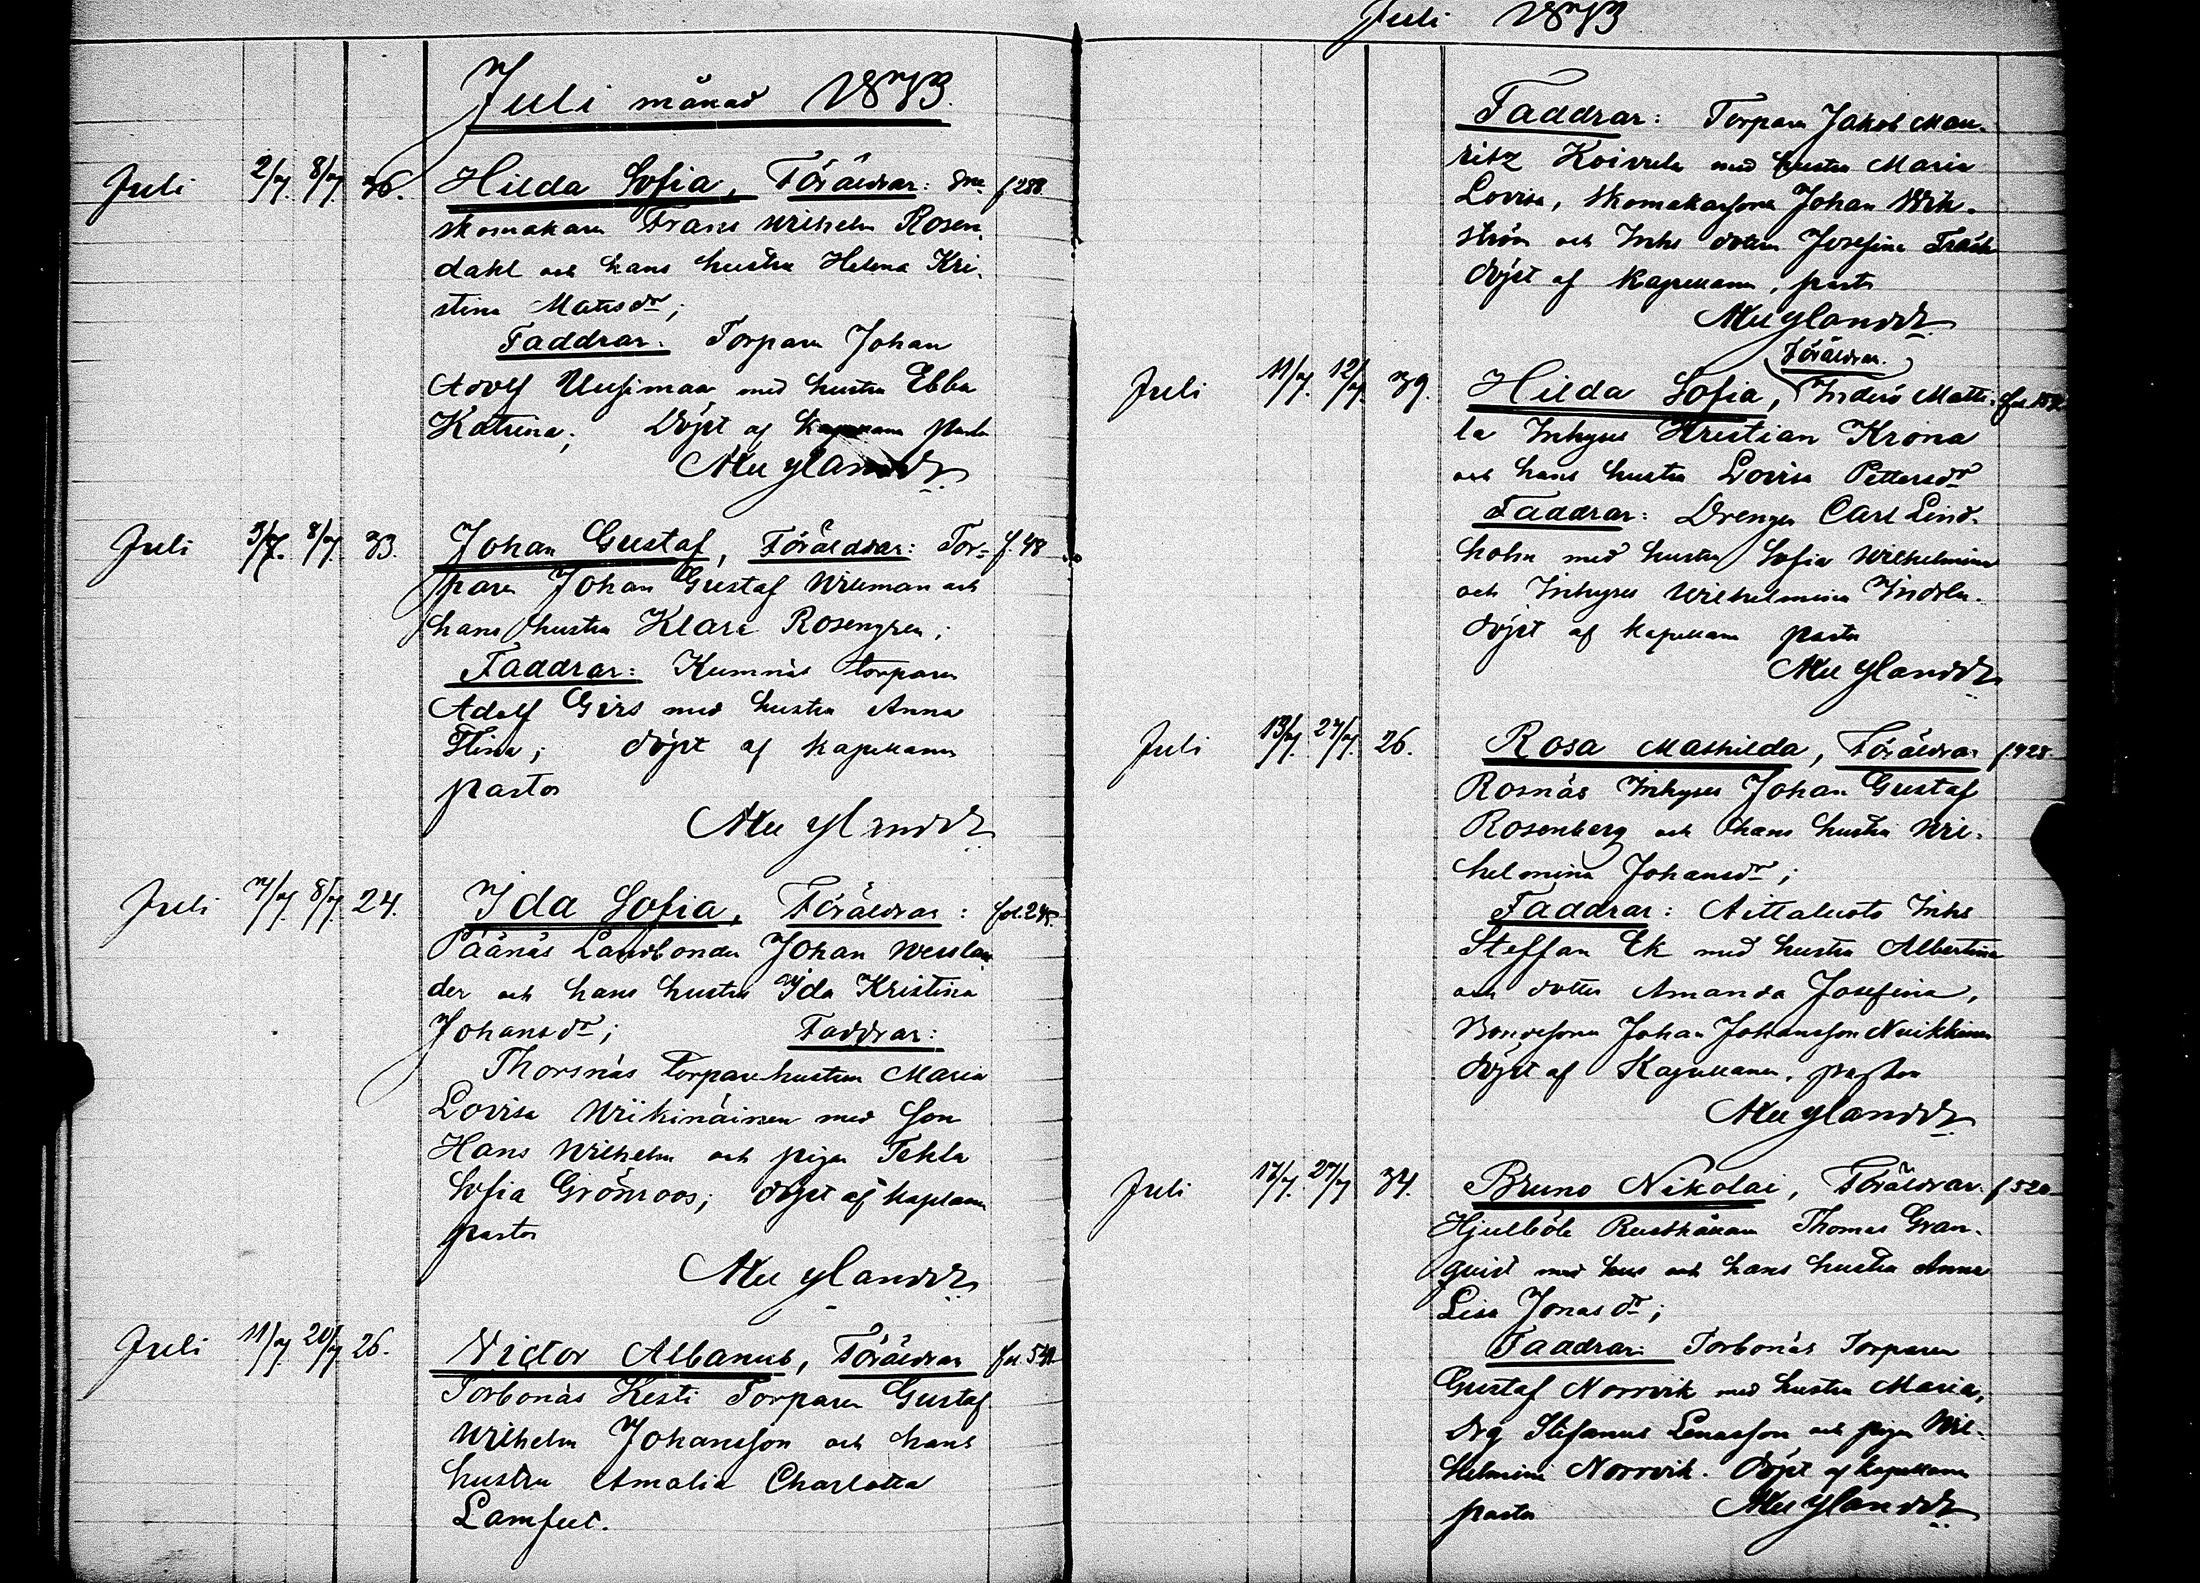 Juli månad 1883.
Juli 2/7. 8/7. 36. Hilda Sofia, Föräldrar: f 288
skomakaren Frans Wilhelm Rosen-
dahl och hans hustru Helena Kri-
stina Matsdr;
Faddrar: Torparen Johan
Adolf Uusimaa med hustru Ebba
Katrina; Döpt af Kapellanen pastor
Juli 3/7. 8/7. 33. Johan Gustaf, Föräldrar: Tor- f. 48
paren Johan Gustaf Willman och
hans hustru Klara Rosengren;
Faddrar: Kumnäs torparen
Adolf Girs med hustru Anna
Stina; döpt af kapellanen
pastor
Juli 7/7. 8/7. 24. Ida Sofia, Föräldrar:
Päänäs Landbonden Johan Wesslan-
der och hans hustru Ida Kristina
Johansdr; Faddrar:
Thorsnäs torparehustrun Maria
Lovisa Wiikinäinen med son
Hans Wilhelm och pigan Tekla
Sofia Grönroos; döpt af kapellanen
pastor
Juli 11/7. 20/7. 26. Victor Albanus, Föräldrar
Torbonäs Kesti Torparen Gustaf
Wilhelm Johansson och hans
hustru Amalia Charlotta
Lamfelt.
Juli 1883
Faddrar: Torparen Jakob Mau-
ritz Koivula med hustru Maria
Lovisa, skomakarsonen Johan Wik-
ström och Inhs dottern Josefina Träsk
döpt af Kapellanen, pastor
Föräldrar.
Juli 11/7. 12/7. 39. Hilda Sofia, Inderö Matti-
la Inhyses Kristian Krona
och hans hustru Lovisa Pettersdr
Faddrar: Drengen Carl Lind-
holm med hustru Sofia Wilhelmina
och Inhyses Wilhelmina Indola.
döpt af kapellanen pastor
Juli 13/7. 27/7. 26. Rosa Mathilda, Föräldrar f. 428
Rosnäs Inhyses Johan Gustaf
Rosenberg och hans hustru Wil-
helmina Johansdr;
Faddrar: Aittaluoto Inhs
Steffan Ek med hustru Albertina
och dotter Amanda Josefina,
Bondesonen Johan Johansson Nuikkinen
döpt af Kapellanen, pastor
Juli 17/7. 27/7 34. Bruno Nikolai, Föräldrar. f 520
Hjulböle Rusthållaren Thomas Gran-
qvist med hus och hans hustru Anna
Lisa Jonasdr;
Faddrar: Torbonäs Torparen
Gustaf Norrvik med hustru Maria,
Drg Stefanus Lenasson och pigan Wil-
helmina Norrvik. Döpt af kapellanen
pastor